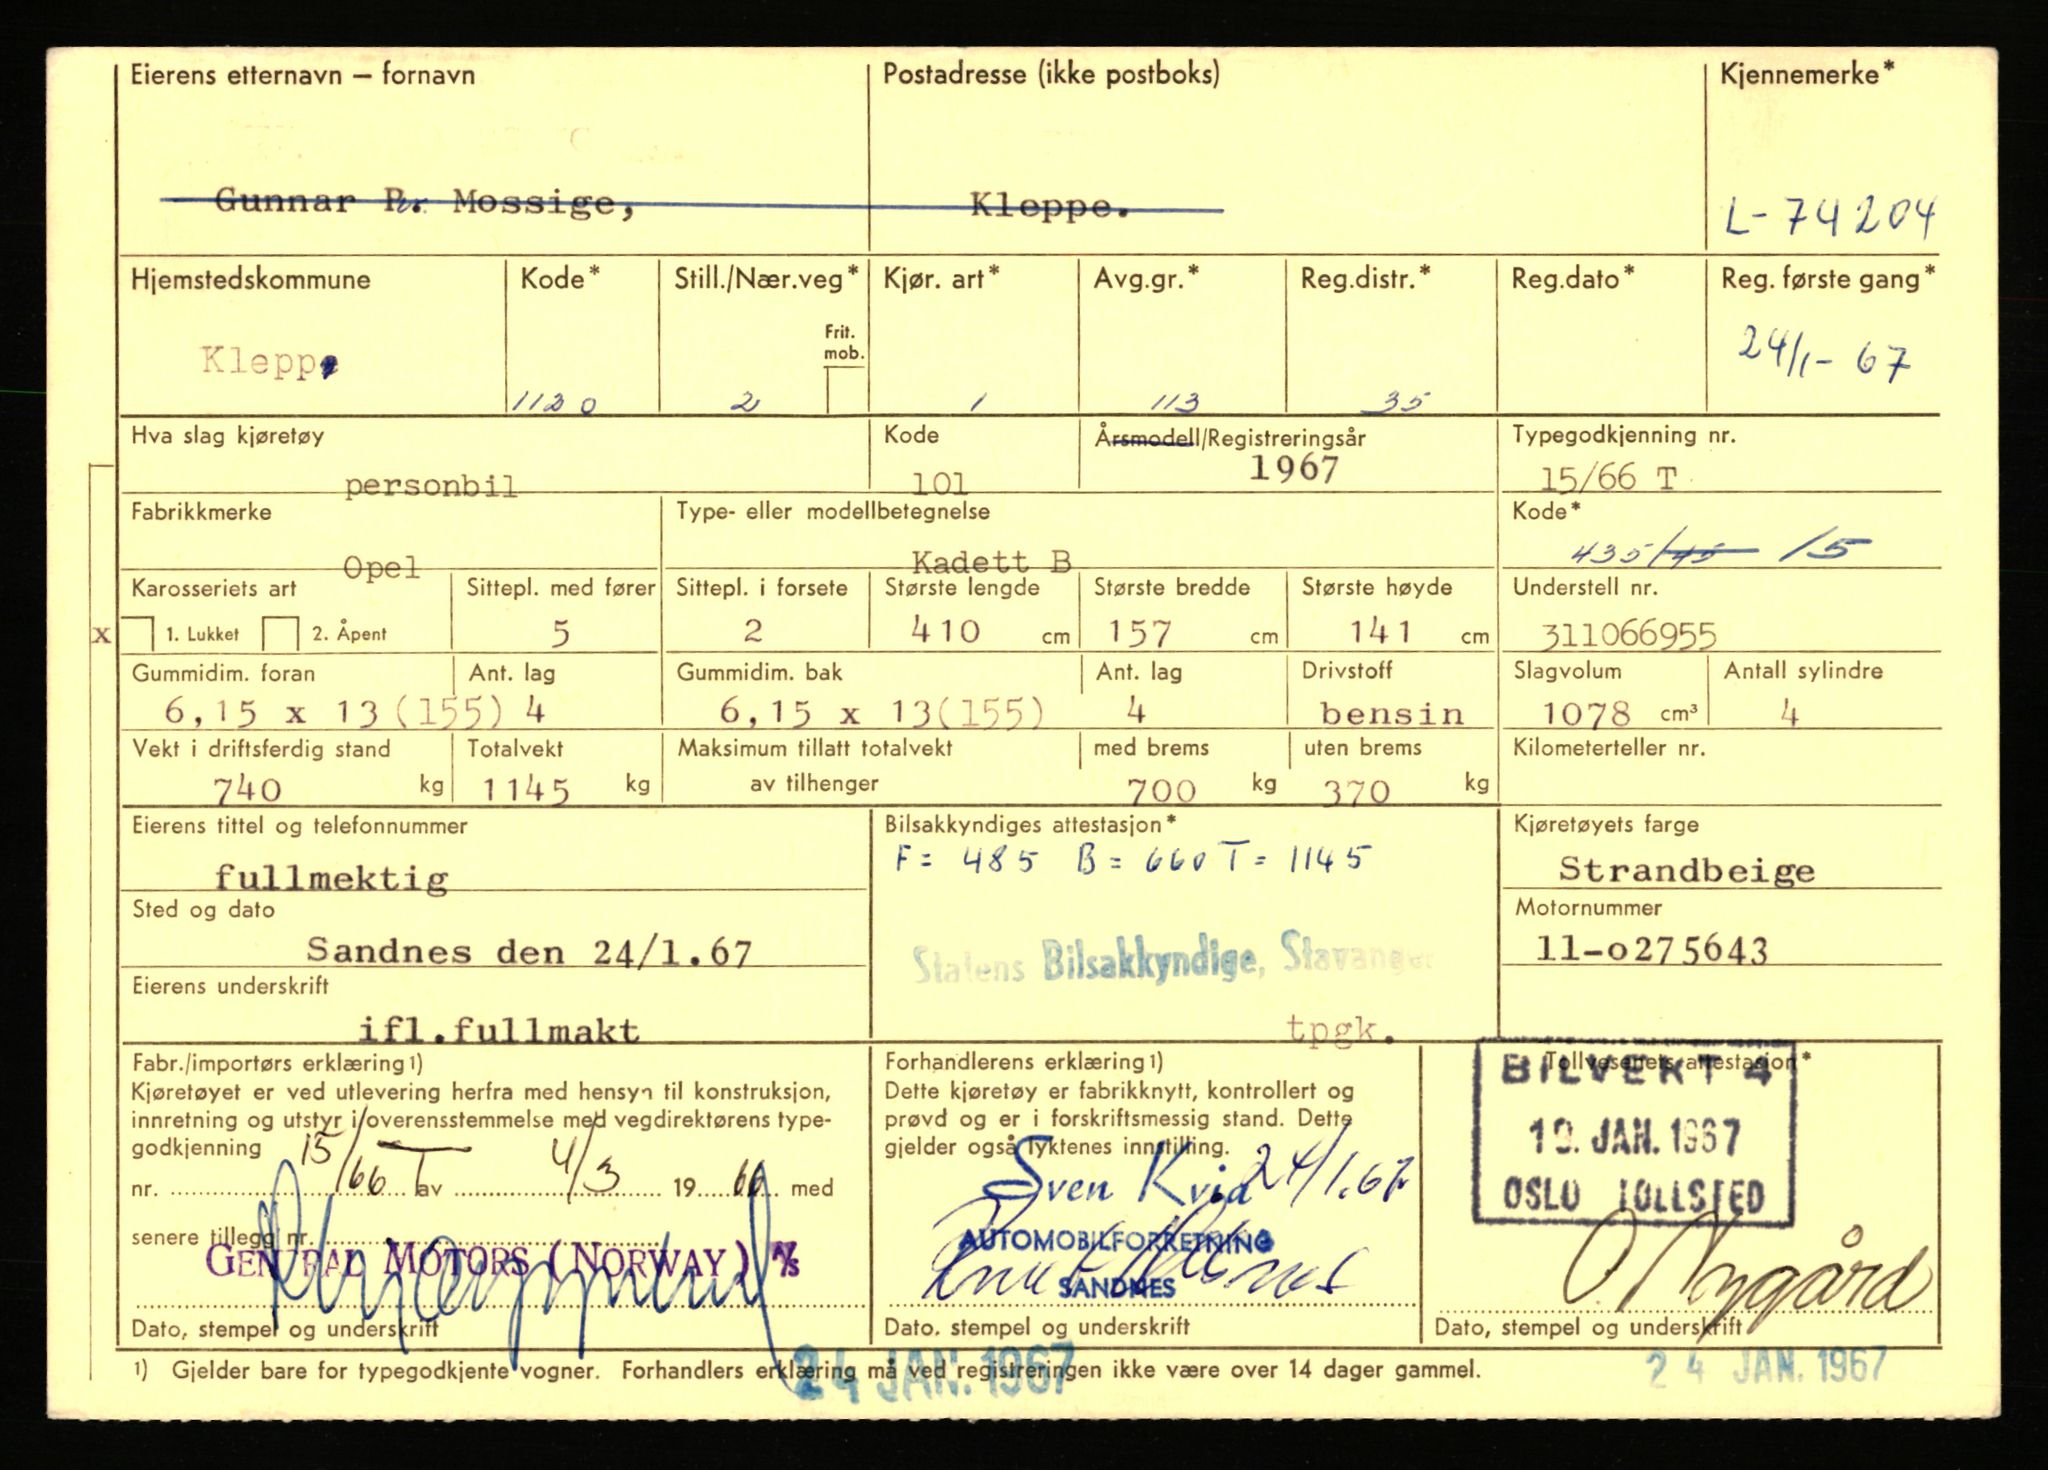 Eierens etternavn — fornavn
Postadresse (ikke postboks)
Kjennemerke*
Gunnar P. Mossige,
Kleppe.
L-74204
Hjemstedskommune
Kode*
Still./Nær.veg*
Kjør. art*
Avg.gr.*
Reg.distr.*
Reg.dato*
Reg. første gang*
Frit.
mob.
Kleppe
1120
2
1
113
35
24/1-67
Hva slag kjøretøy
Kode
Årsmodell/Registreringsår
Typegodkjenning nr.
personbil
101
1967
15/66 T
Fabrikkmerke
Type- eller modellbetegnelse
Kode*
Opel
Kadett B
435/45 15
Karosseriets art
Sittepl. med fører
Sittepl. i forsete
Største lengde
Største bredde
Største høyde
Understell nr.
x
1. Lukket
2. Åpent
5
2
410 cm
157 cm
141 cm
311066955
Gummidim. foran
Ant. lag
Gummidim. bak
Ant. lag
Drivstoff
Slagvolum
Antall sylindre
6,15 x 13(155)
4
6,15 x 13(155)
4
bensin
1078 cm³
4
Vekt i driftsferdig stand
Totalvekt
Maksimum tillatt totalvekt
med brems
uten brems
Kilometerteller nr.
740 kg
1145 kg
av tilhenger
700 kg
370 kg
Eierens tittel og telefonnummer
Bilsakkyndiges attestasjon*
Kjøretøyets farge
fullmektig
F = 485 B = 660 T = 1145
Strandbeige
Sted og dato
Motornummer
Sandnes den 24/1.67
Statens Bilsakkyndige, Stavanger
11-o275643
Eierens underskrift
ifl.fullmakt
tpgk.
Fabr./importørs erklæring1)
Kjøretøyet er ved utlevering herfra med hensyn til konstruksjon,
innretning og utstyr i overensstemmelse med vegdirektørens type-
godkjenning
nr. 15/66 T av 4/3 1966 med
senere tillegg nr.
GENERAL MOTORS (NORWAY) A/S
Dato, stempel og underskrift
Forhandlerens erklæring1)
Dette kjøretøy er fabrikknytt, kontrollert og
prøvd og er i forskriftsmessig stand. Dette
gjelder også lyktenes innstilling.
Sven Kvia 24/1.67.
AUTOMOBILFORRETNING
SANDNES
Dato, stempel og underskrift
Tollvesenets attestasjon*
BILVEKT 4
19. JAN. 1967
OSLO TOLLSTED
O. Nygård
Dato, stempel og underskrift
1) Gjelder bare for typegodkjente vogner. Forhandlers erklæring må ved registreringen ikke være over 14 dager gammel.
24 JAN. 1967
24 JAN. 1967